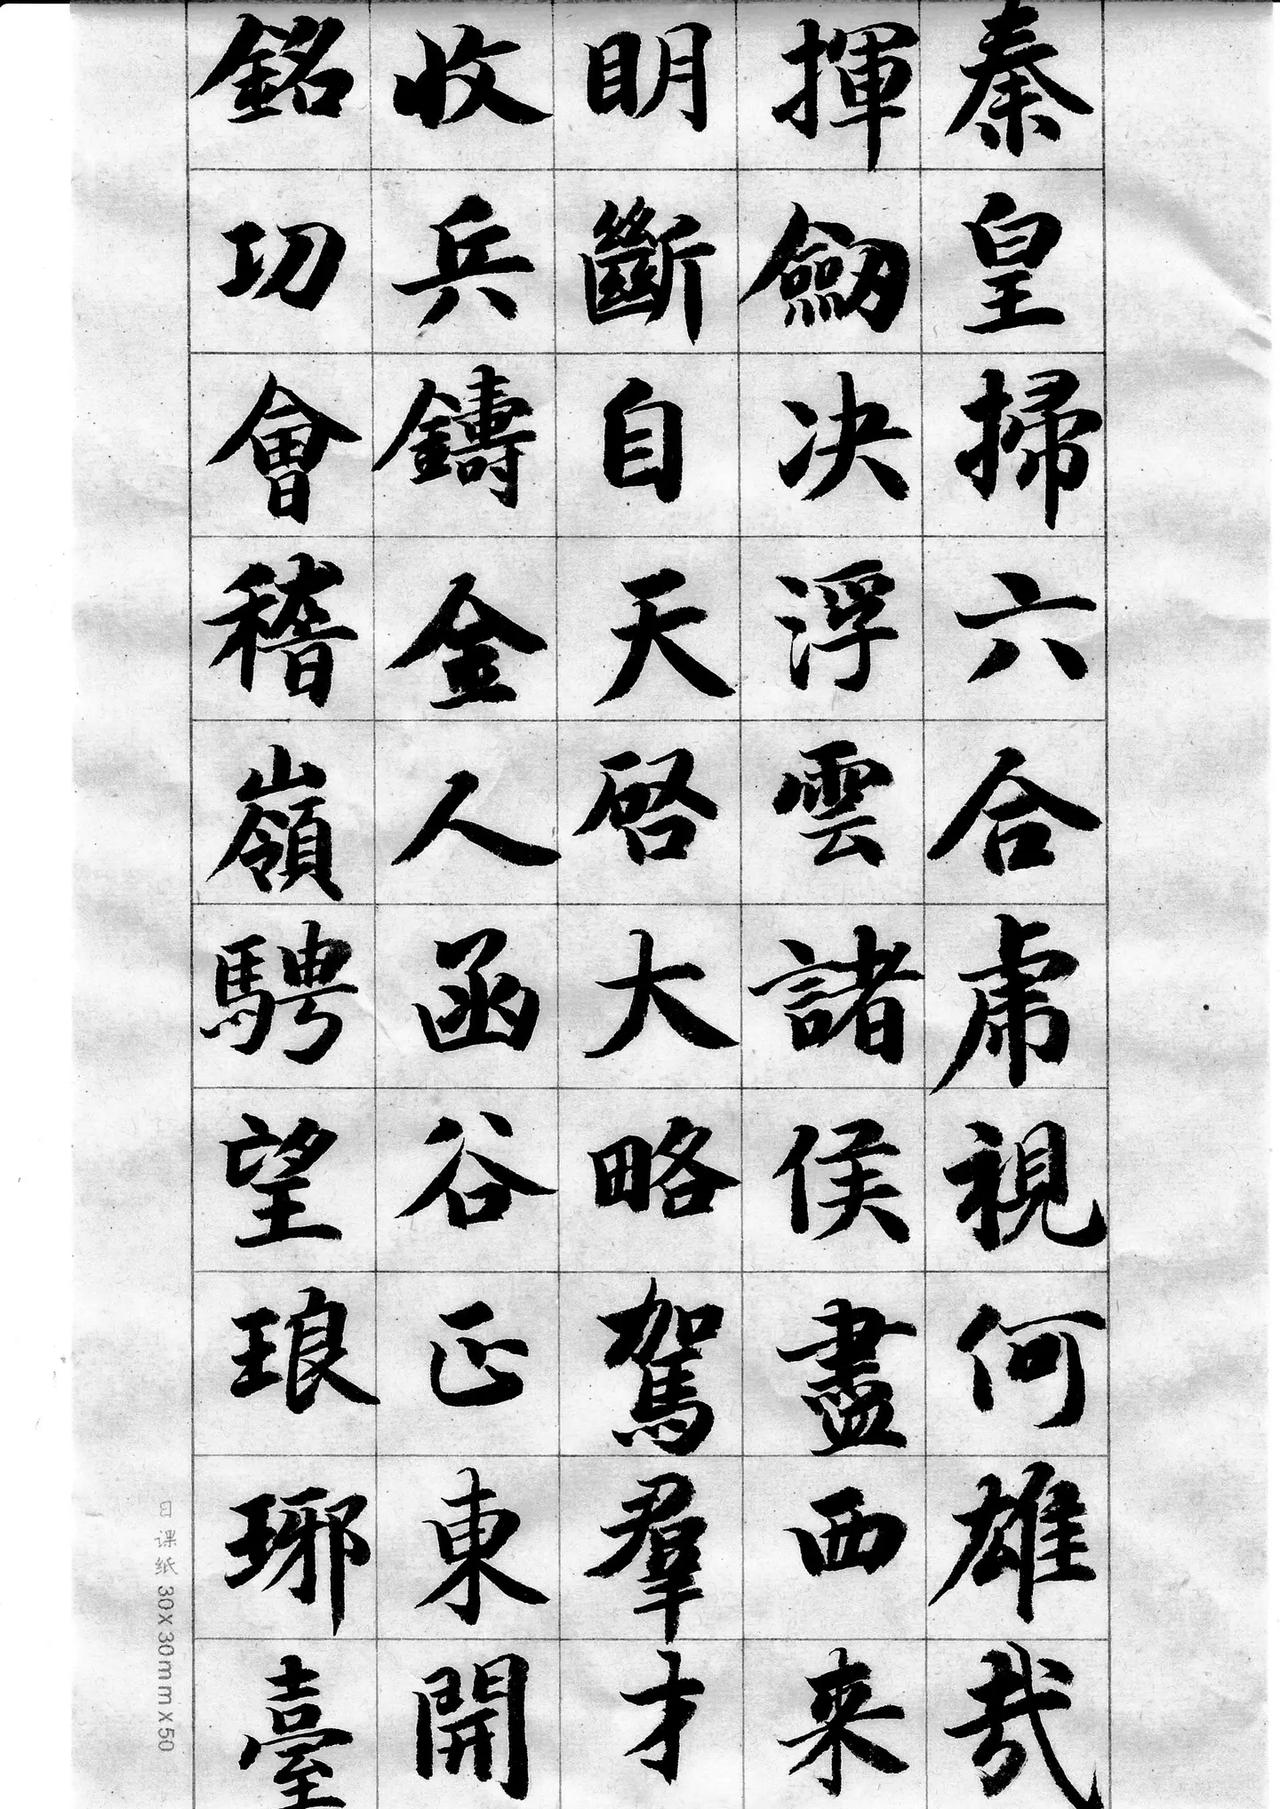 秦皇掃六合虎視何雄哉
揮劒决浮雲諸侯盡西来
明斷自天啓大略駕羣才
收兵鑄金人函谷正東開
銘功會稽嶺騁望琅琊臺
日课纸 30x30mmx50